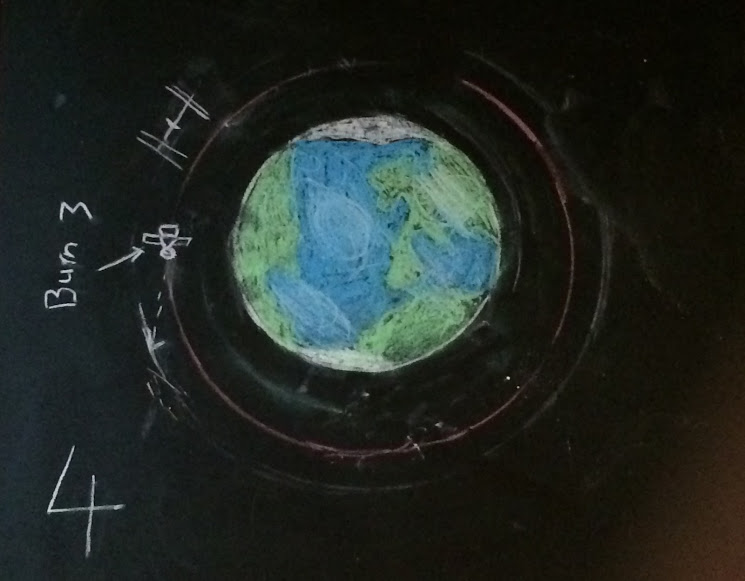 Burn 3
4